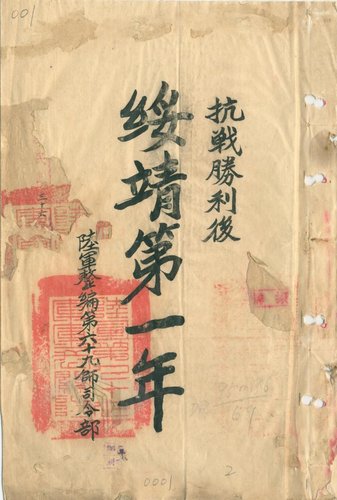 001
抗戰勝利後
綏靖第一年
陸軍整編第六十九師司令部
0001
2